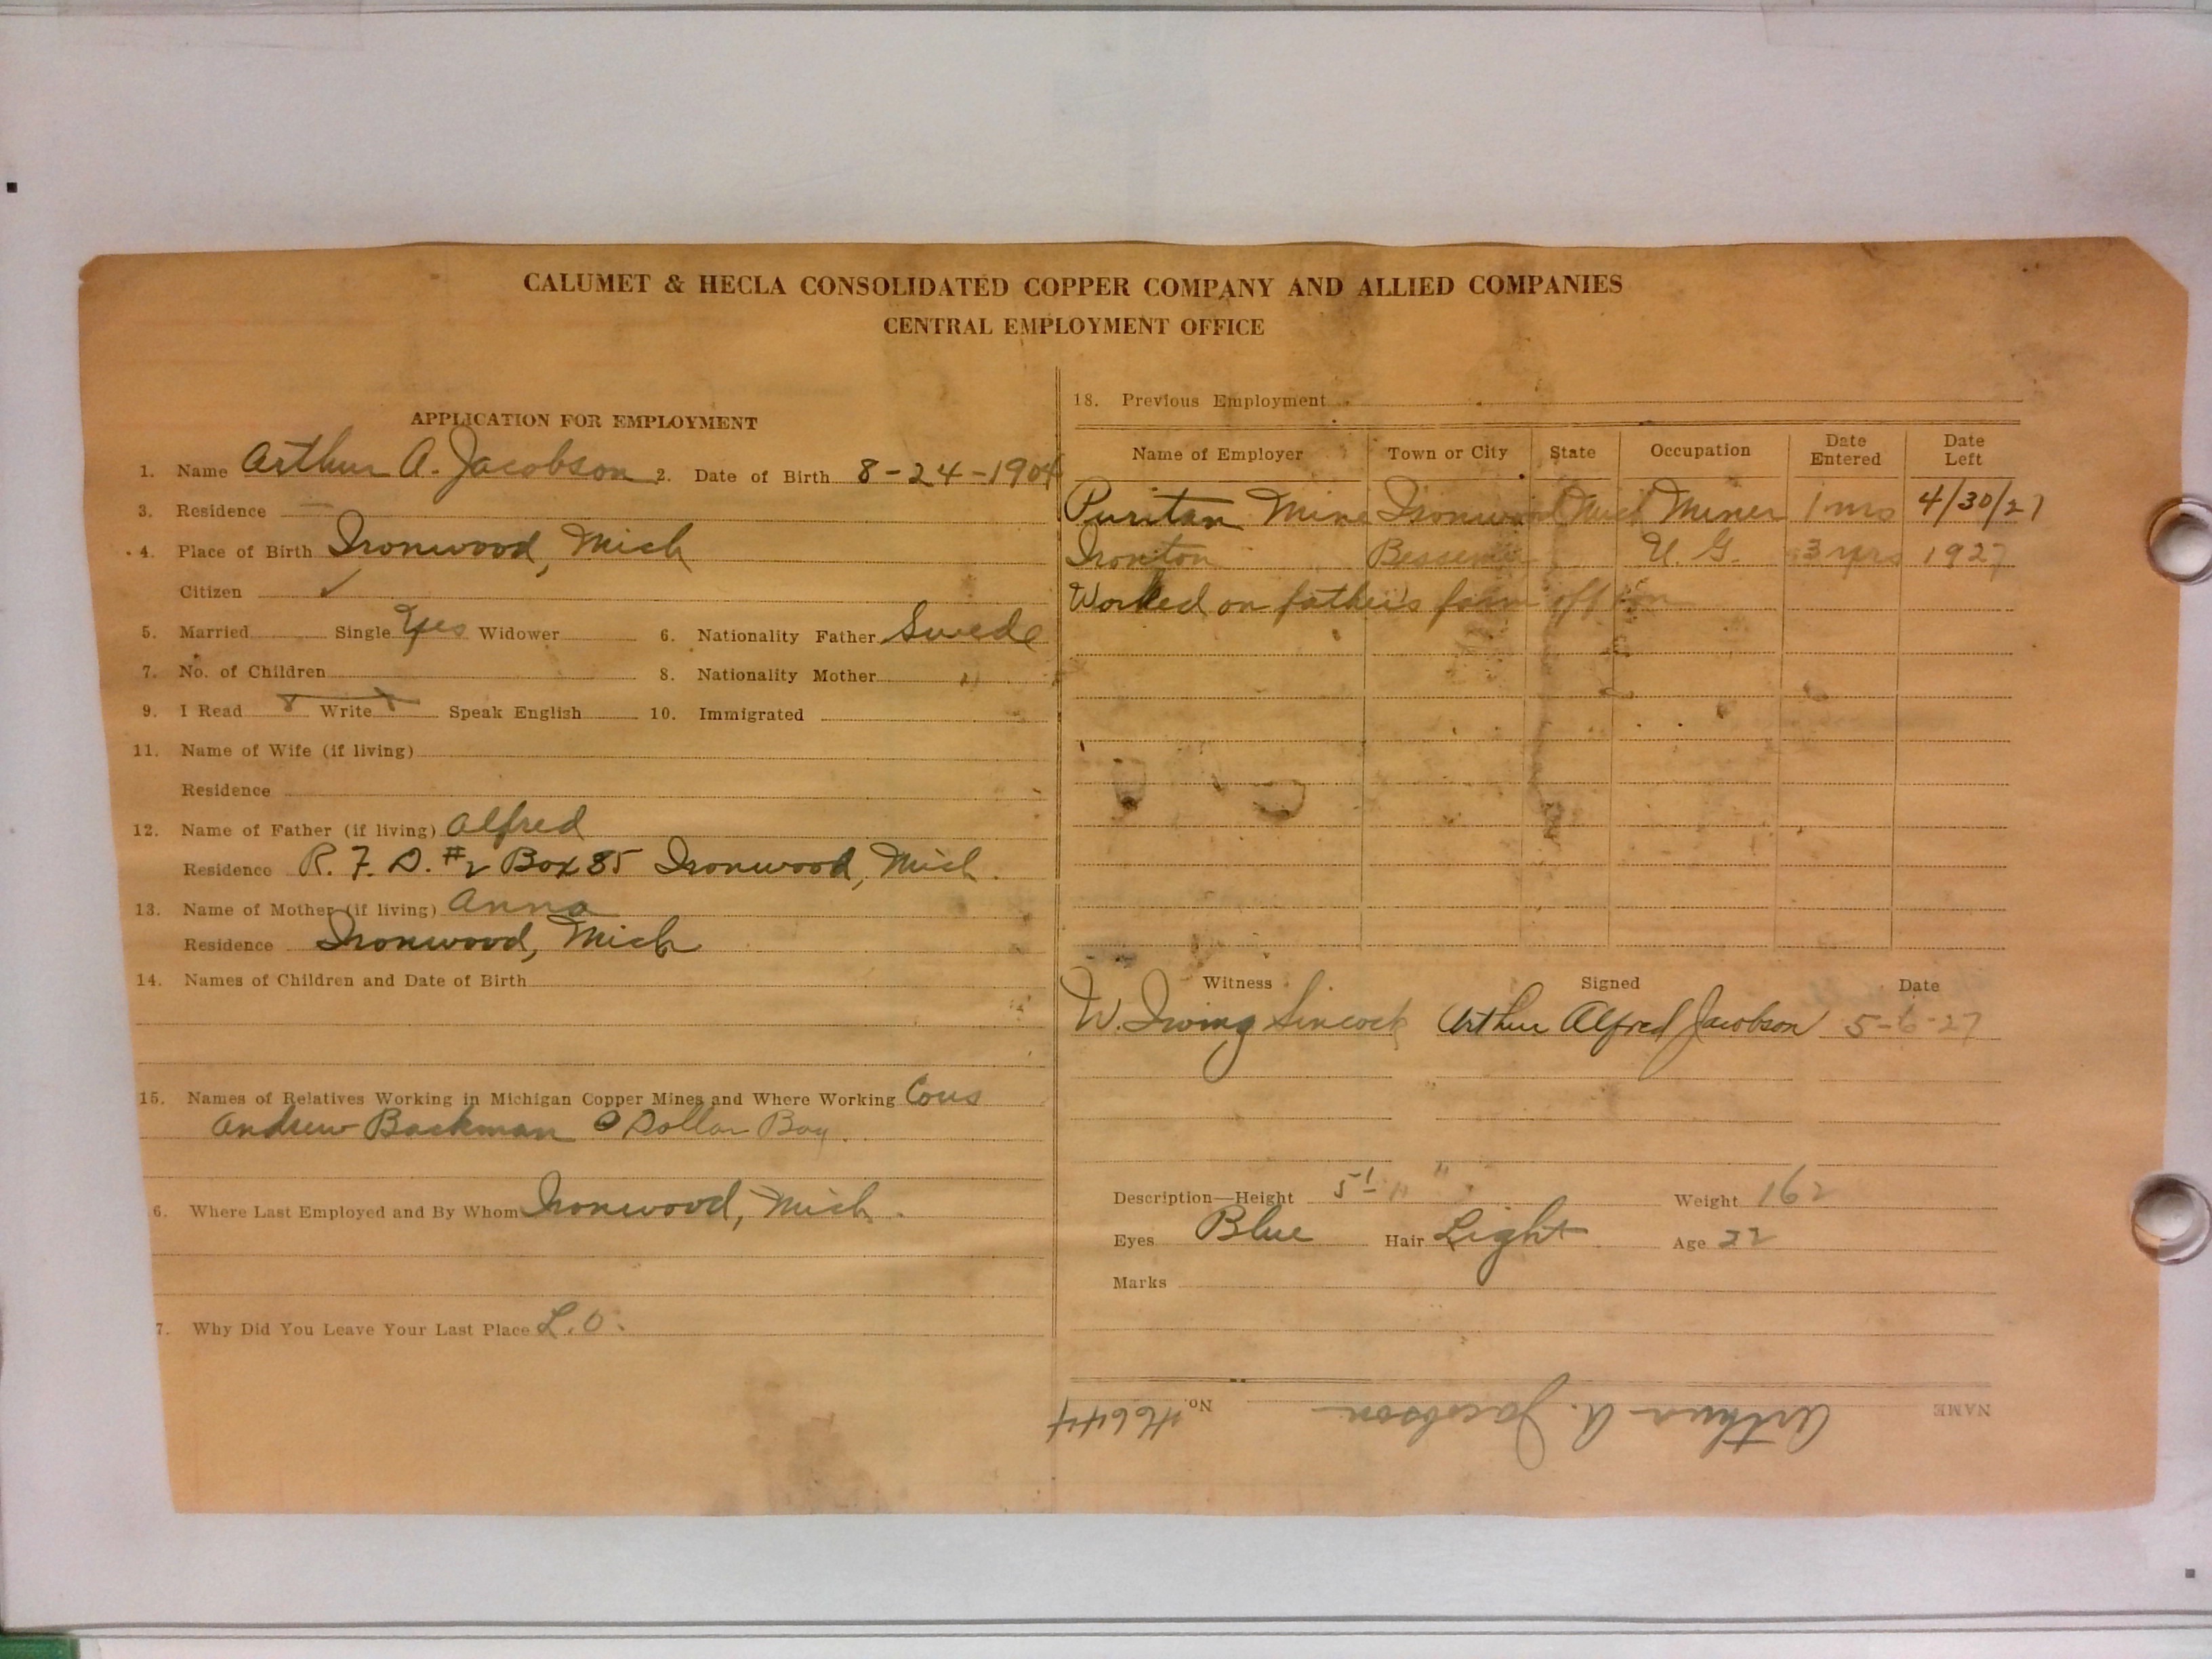 CALUMET & HECLA CONSOLIDATED COPPER COMPANY AND ALLIED COMPANIES
CENTRAL EMPLOYMENT OFFICE
APPLICATION FOR EMPLOYMENT
1. Name Arthur A. Jacobson 2. Date of Birth 8-24-1904
3. Residence —
4. Place of Birth Ironwood, Mich
Citizen ✓
5. Married Single Yes Widower 6. Nationality Father Swede
7. No. of Children 8. Nationality Mother "
9. I Read Write Speak English 10. Immigrated
11. Name of Wife (if living)
Residence
12. Name of Father (if living) Alfred
Residence R. F. D. #2 Box 85 Ironwood, Mich.
13. Name of Mother (if living) Anna
Residence Ironwood, Mich
14. Names of Children and Date of Birth
15. Names of Relatives Working in Michigan Copper Mines and Where Working Cous
Andrew Backman Dollar Bay.
6. Where Last Employed and By Whom Ironwood, Mich.
7. Why Did You Leave Your Last Place L.O.
18. Previous Employment
Name of Employer Town or City State Occupation Date Entered Date Left
Puritan Mine Ironwood Mich Miner 1 4/30/27
Ironton Bessemer U. G. 3 yrs 1927
Worked on father's farm off
Witness Signed Date
W. Irving Sincock Arthur Alfred Jacobson 5-6-27
Description—Height 5' Weight 162
Eyes Blue Hair Light Age 22
Marks
NAME Arthur A. Jacobson No.